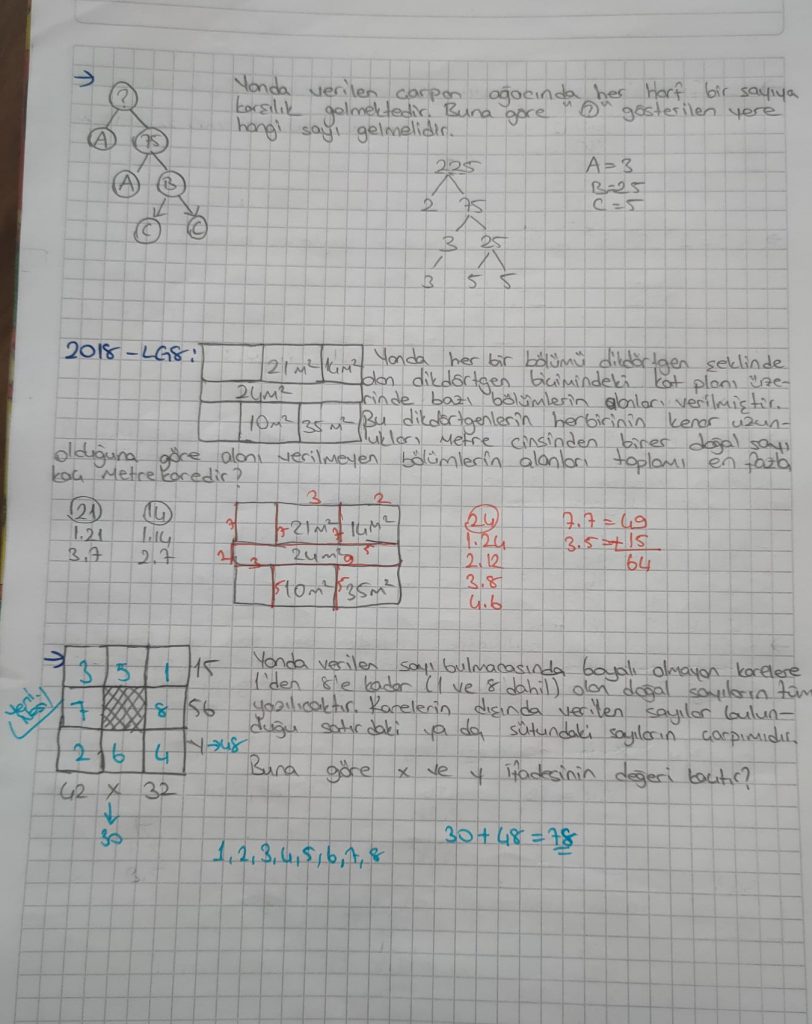 → Yanda verilen çarpan ağacında her Harf bir sayıya
karşılık gelmektedir. Buna göre "?" gösterilen yere
hangi sayı gelmelidir.
?
A 75
A B
C C
225
2 75
3 25
3 5 5
A = 3
B = 25
C = 5
2018 - LGS:
21m² 14m²
24m²
10m² 35m²
Yanda her bir bölümü dikdörtgen şeklinde
olan dikdörtgen biçimindeki kat planı üze-
rinde bazı bölümlerin alanları verilmiştir.
Bu dikdörtgenlerin herbirinin kenar uzun-
lukları metre cinsinden birer doğal sayı
olduğuna göre alanı verilmeyen bölümlerin alanları toplamı en fazla
kaç metrekaredir?
21 14
1.21 1.14
3.7 2.7
3 2
7 7 21m² 7 14m²
2 3 24m²
5 10m² 5 35m²
24
1.24
2.12
3.8
4.6
7.7 = 49
3.5 = +15
64
→ Yanda verilen sayı bulmacasında boyalı olmayan karelere
1'den 8'e kadar (1 ve 8 dahil) olan doğal sayıların tüm
yazılacaktır. Karelerin dışında verilen sayılar bulun-
duğu satırdaki ya da sütundaki sayıların çarpımıdır.
Buna göre x ve y ifadesinin değeri kaçtır?
3 5 1 15
7 8 56
2 6 4 y→48
42 x 32
30
1,2,3,4,5,6,7,8
30 + 48 = 78